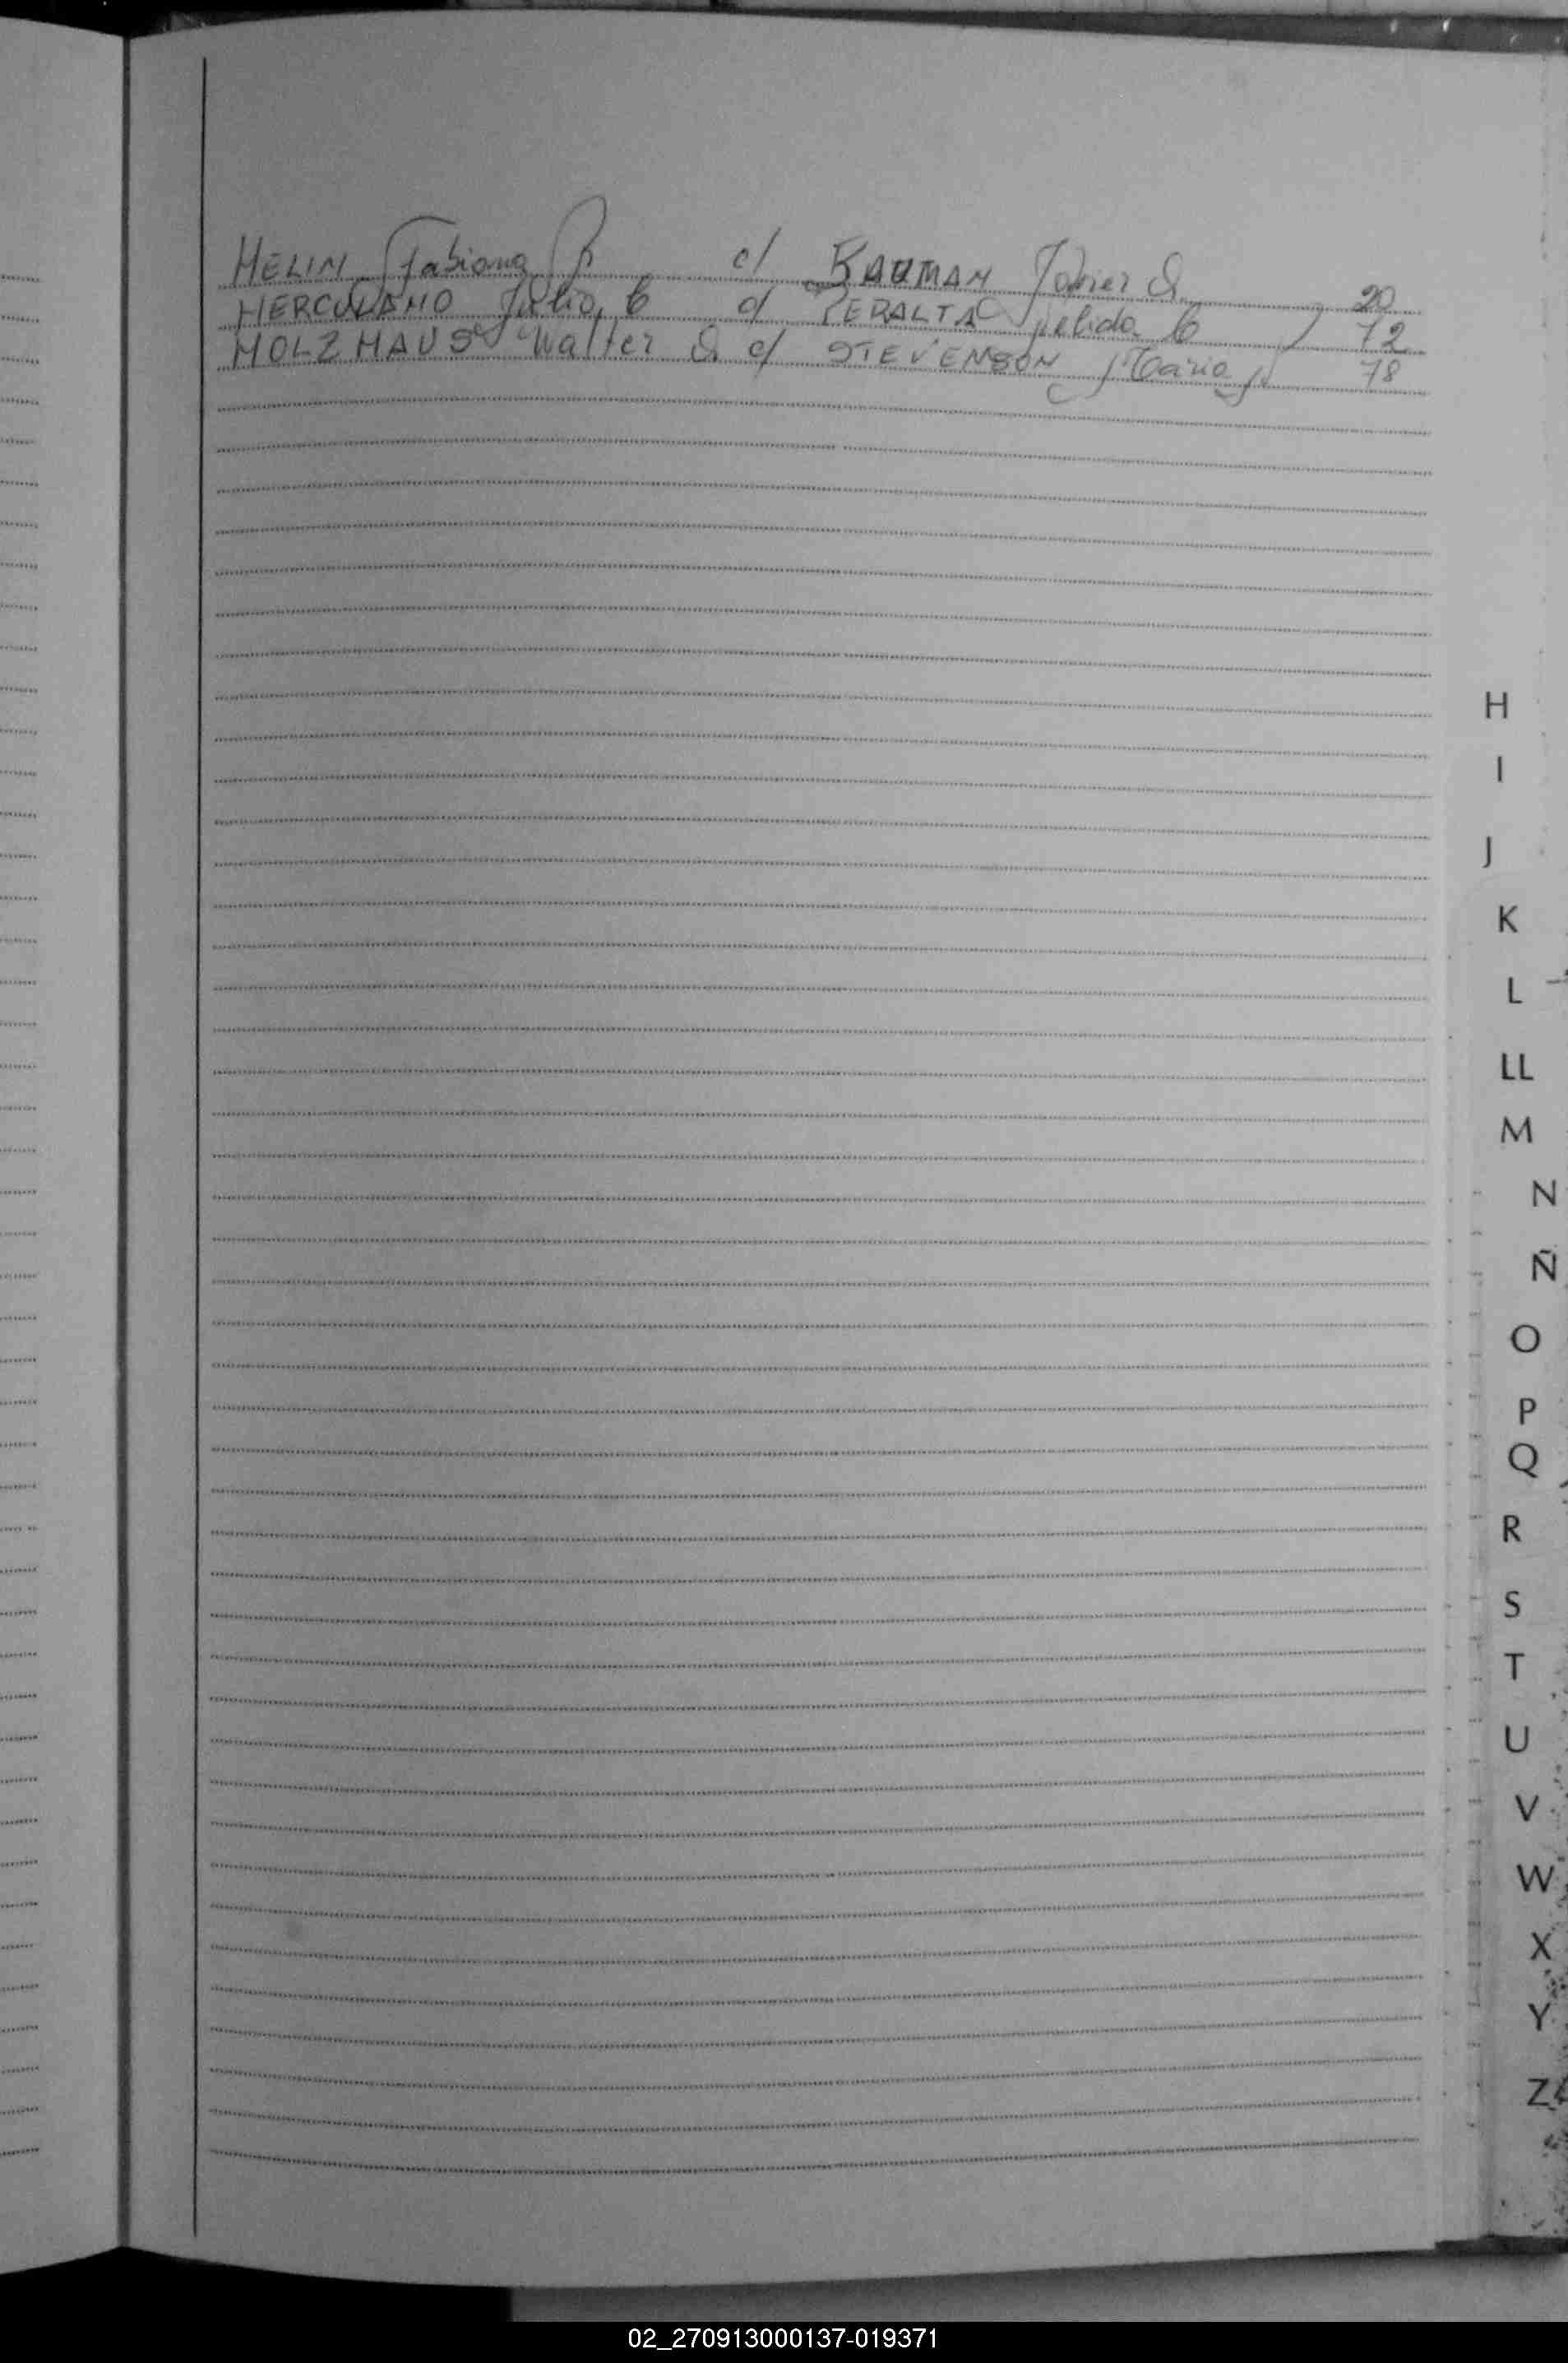 HELIN Fabiana P c/ BAUMAN Javier D 20
HERCULANO Julio C c/ PERALTA Nelida C 72
HOLZHAUS Walter D c/ STEVENSON Maria J 78
H
I
J
K
L
LL
M
N
Ñ
O
P
Q
R
S
T
U
V
W
X
Y
Z
02_270913000137-019371